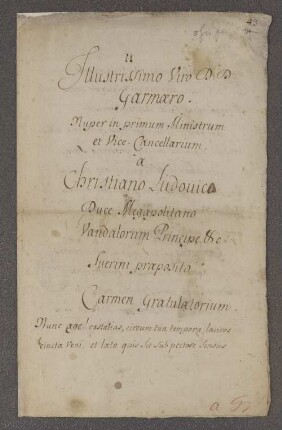 Illustrissimo Viro D D
Garmæro.
Nuper in primum Ministrum
et Vice-Cancellarium
a
Christiano Ludovico
Duce Megapolitano
Vandalorum Principe &c
Suerini præposito
Carmen Gratulatorium.
Nunc age! castalias, circum tua tempora, lauros
vincta veni, et læto quis sit sub pectore sensus